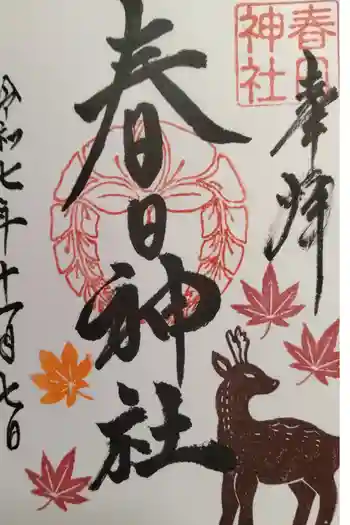 奉拝
春日神社
春日神社
令和七年十一月七日